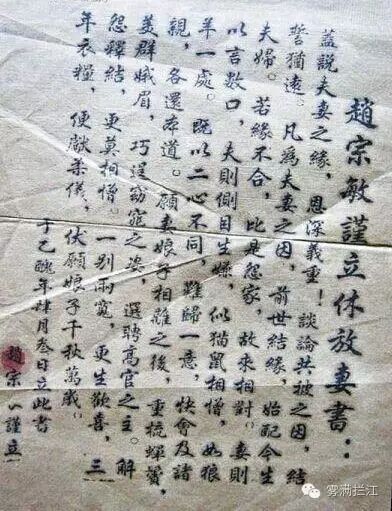 趙宗敏謹立休放妻書：
蓋説夫妻之緣，恩深義重！談論共被之因，結
誓猶遠。凡為夫妻之因，前世結緣，始配今生
夫婦。若緣不合，此是怨家，故來相對。妻則
以言數口，夫則側目生嫌，似猫鼠相憎，如狼
羊一處。既以二心不同，難歸一意，快會及諸
親，各還本道。願妻娘子相離之後，重梳蟬鬢，
美群娥眉，巧逞窈窕之姿，選聘高官之主。解
怨釋結，更莫相憎。一别兩寬，更生歡喜，三
年衣糧，便獻柔儀，伏願娘子千秋萬歲。
于乙醜年肆月叁日立此書
趙宗 謹立
雾满拦江